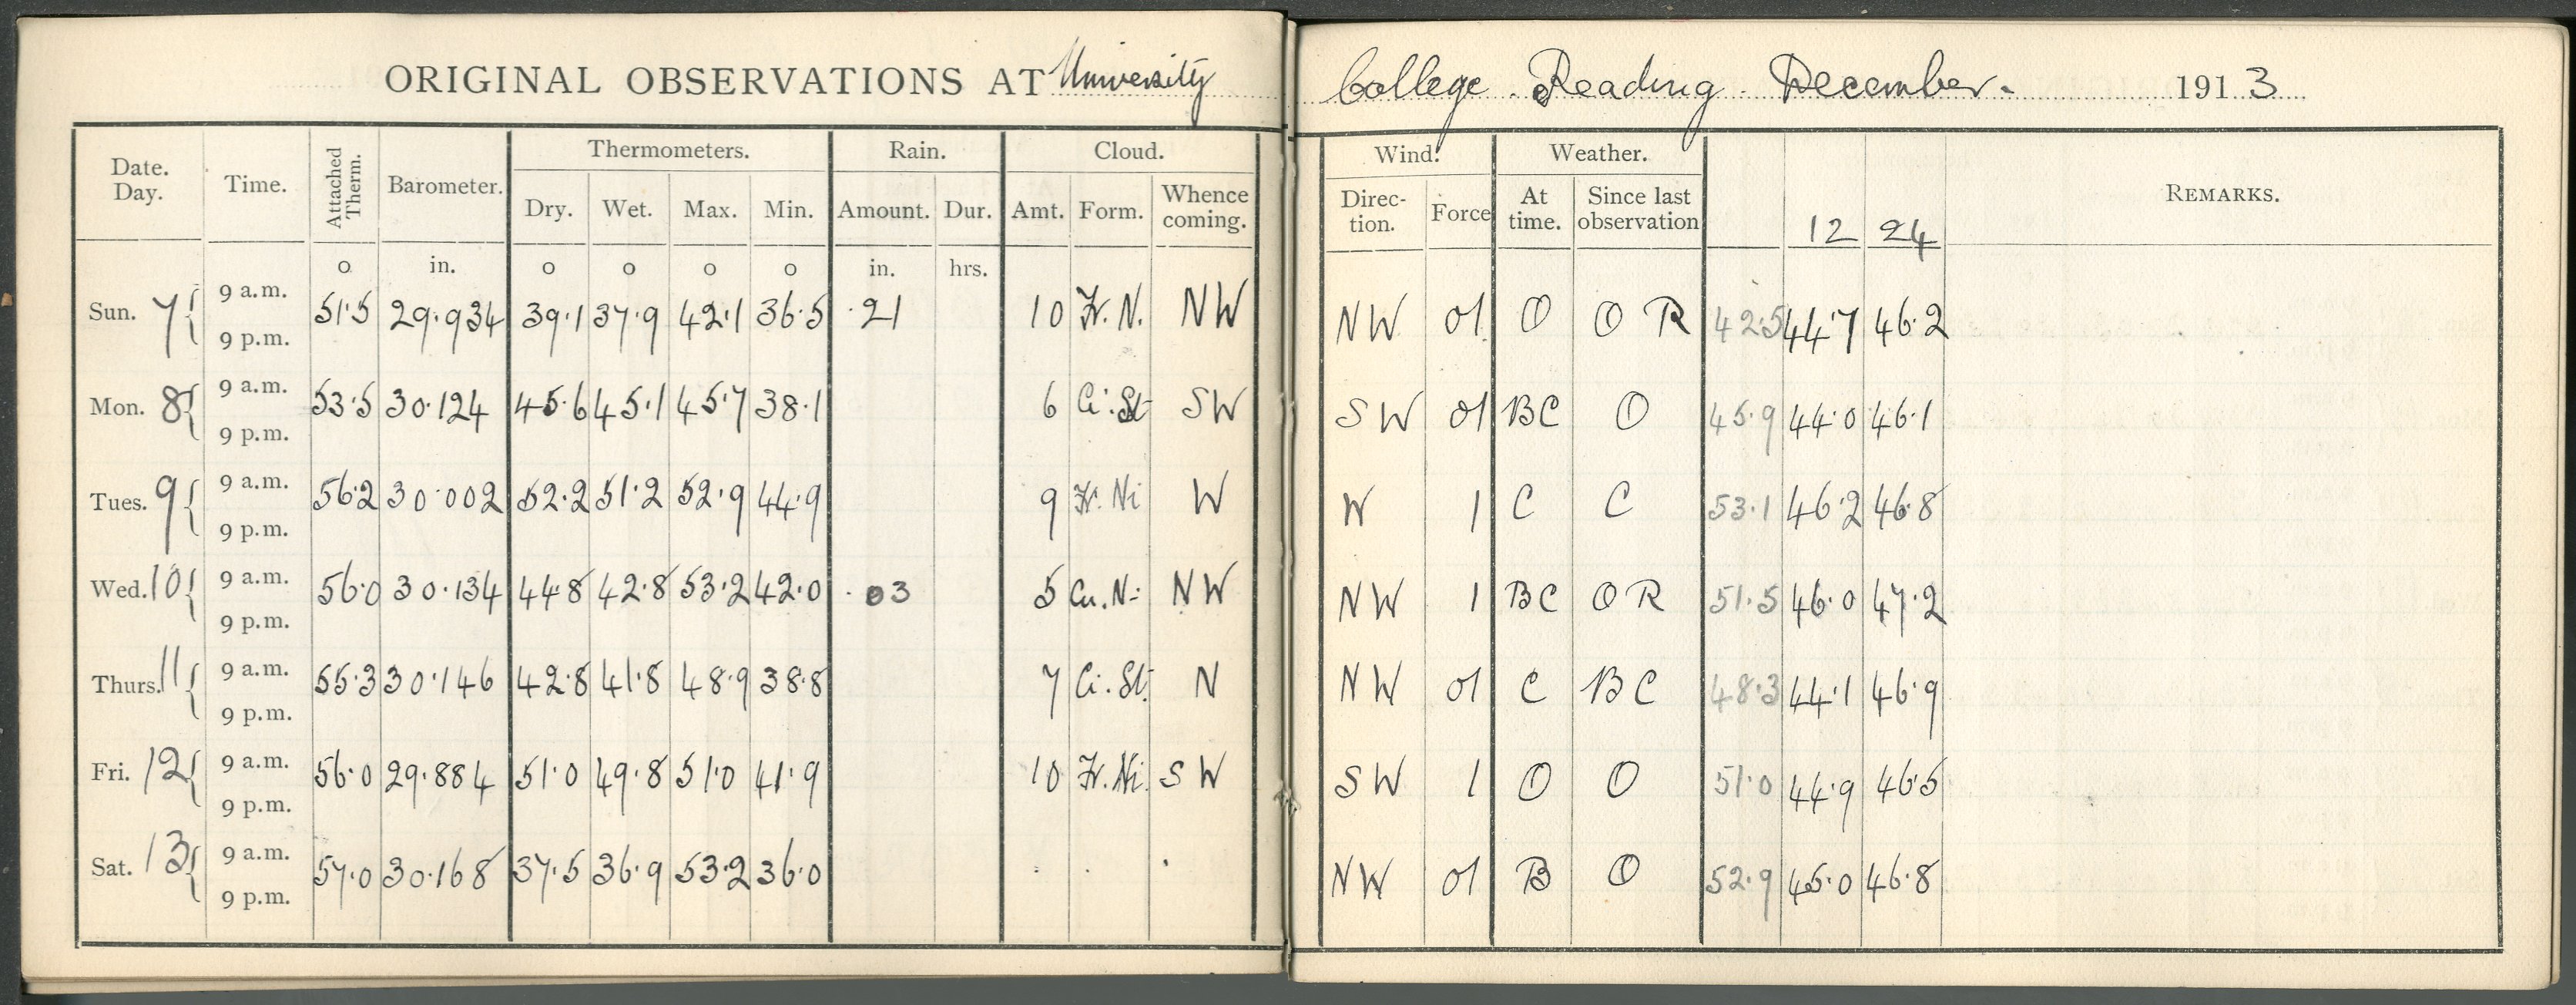 ORIGINAL OBSERVATIONS AT University College Reading December. 1913
Date. Day. Time. Attached Therm. Barometer. Thermometers. Rain. Cloud. Wind. Weather. REMARKS.
Dry. Wet. Max. Min. Amount. Dur. Amt. Form. Whence coming. Direction. Force At time. Since last observation 12 24
o in. o o o o in. hrs.
Sun. 7 { 9 a.m. 9 p.m. 51.5 29.934 39.1 37.9 42.1 36.5 .21 10 Fr. N. NW NW 01 O O R 42.5 44.7 46.2
Mon. 8 { 9 a.m. 9 p.m. 53.5 30.124 45.6 45.1 45.7 38.1 6 Ci.St SW SW 01 BC O 45.9 44.0 46.1
Tues. 9 { 9 a.m. 9 p.m. 56.2 30.002 52.2 51.2 52.9 44.9 9 Fr. Ni W W 1 C C 53.1 46.2 46.8
Wed. 10 { 9 a.m. 9 p.m. 56.0 30.134 44.8 42.8 53.2 42.0 .03 5 Cu. Ni NW NW 1 BC O R 51.5 46.0 47.2
Thurs. 11 { 9 a.m. 9 p.m. 55.3 30.146 42.8 41.8 48.9 38.8 7 Ci. St. N NW 01 C BC 48.3 44.1 46.9
Fri. 12 { 9 a.m. 9 p.m. 56.0 29.884 51.0 49.8 51.0 41.9 10 Fr. Ni. SW SW 1 O O 51.0 44.9 46.5
Sat. 13 { 9 a.m. 9 p.m. 57.0 30.168 37.5 36.9 53.2 36.0 . . . NW 01 B O 52.9 45.0 46.8